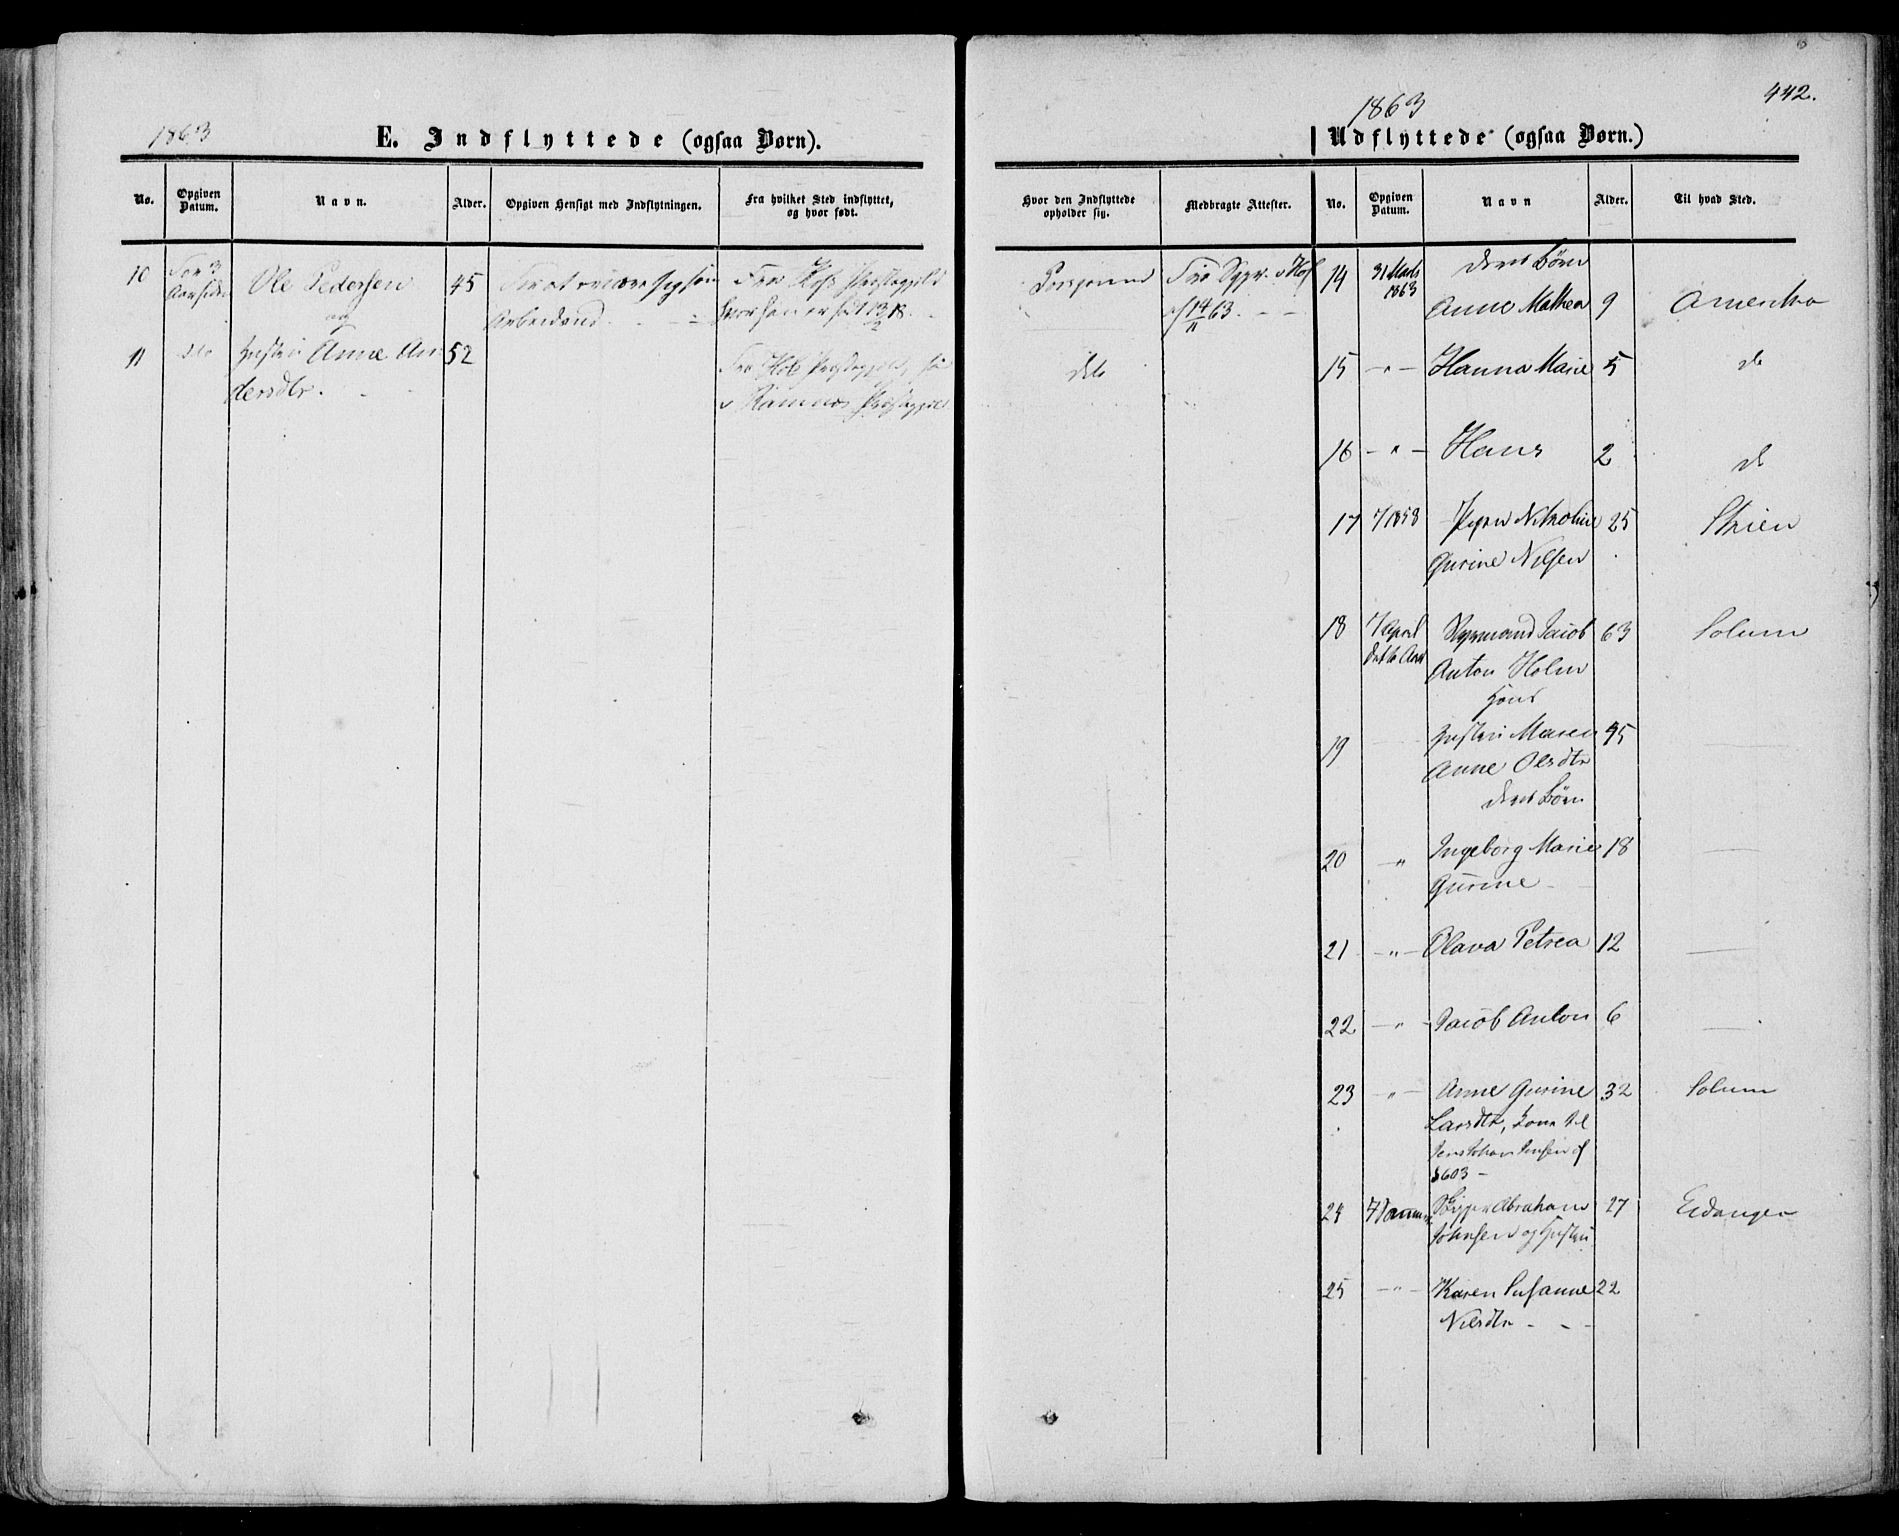 1863
E. Indflyttede (ogsaa Børn).
No.
Opgiven Datum.
Navn.
Alder.
Opgiven Hensigt med Indflytningen.
Fra hvilket Sted indflyttet, og hvor født.
10 Ole Pedersen 45
og
Arbeidend
11 do Anne An 52
dersdtr.
442.
1863
Udflyttede (ogsaa Børn.)
Hvor den Indflyttede opholder sig.
Medbragte Attester.
No.
Opgiven Datum.
Navn
Alder.
Til hvad Sted.
Porsgrund
14/11 63.
dito
deres Børn
14 31 Marts 1863 Anne Mathea 9 Amerika
15 -"- Hanna Marie 5 do
16 -"- Hans 2 do
17 7/1858 Nikoline 25 Skien
Gurine Nilsen
18 7 April dette Aar Jacob 63 Solum
Anton Holm
hans
19 Hustru Maren 45
Anne Olsdtr
deres Børn
20 " Ingeborg Marie 18
Gurine
21 -"- Olava Petrea 12
22 -"- Jacob Anton 6
23 -"- Anne Gurine 32 Solum
Larsdtr, Kone til
24 Abraham 27 Eidanger
Johnsen og Hustru
25 -"- Karen Susanne 22
Nilsdtr